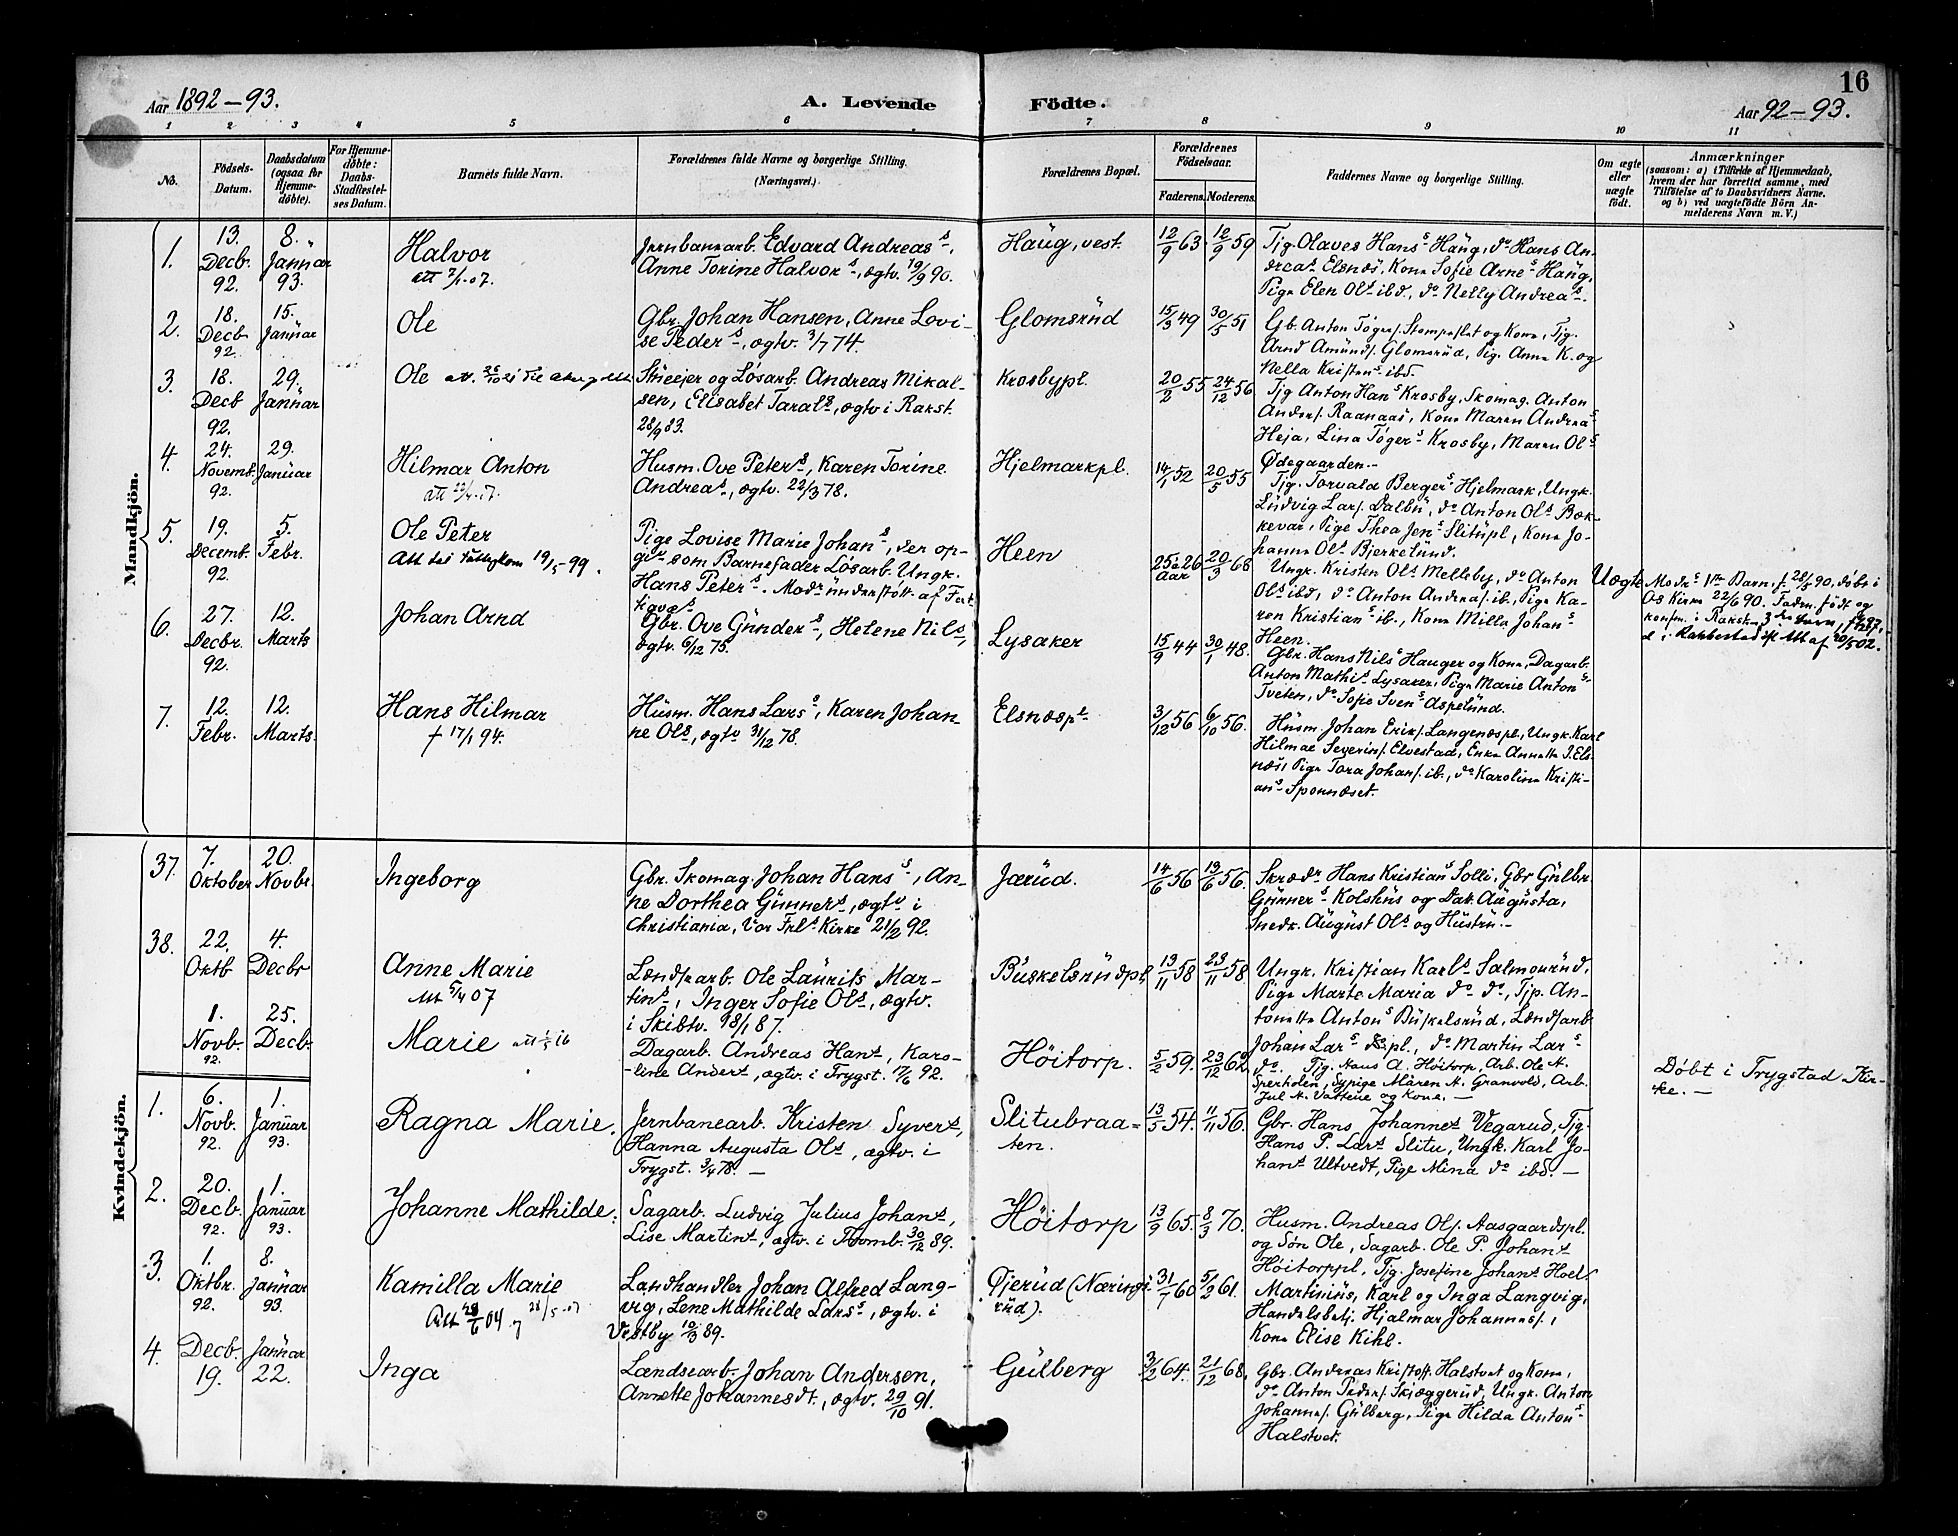 16
Aar 1892-93.
A. Levende Födte.
Aar 92-93.
1 2 3 4 5 6 7 8 9 10 11
No.
Födsels-Datum.
Daabsdatum (ogsaa for Hjemme-döbte).
For Hjemme-döbte: Daabs-Stadfæstel-ses Datum.
Barnets fulde Navn.
Forældrenes fulde Navne og borgerlige Stilling.
(Næringsvei.)
Forældrenes Bopæl.
Forældrenes Födselsaar.
Faderens. Moderens.
Faddernes Navne og borgerlige Stilling.
Om ægte eller uægte födt.
Anmærkninger
(saasom: a) i Tilfælde af Hjemmedaab,
hvem der har forrettet samme, med
Tilföielse af to Daabsvidners Navne.
og b) ved uægtefödte Börn An-
melderens Navn m. V.)
Mandkjön.
1.
13. Decb. 92.
8. Januar 93.
Halvor
att 7/1.07.
Jernbanearb. Edvard Andreass,
Anne Torine Halvors, ægtv. 19/9 90.
Haug, vest.
12/9 63. 12/9 59
Tjg. Olaves Hanss Haug, do Hans An-
dreas Elsnæs, Kone Sofie Arnes Haug,
Pige Elen Ols ibd., do Nelly Andreas.
2.
18. Decb 92.
15. Januar
Ole
Gbr. Johan Hansen, Anne Lovi-
se Peders, ægtv. 3/7 74.
Glomsrud
15/3 49 30/5 51
Gb. Anton Tøgers. Stompeflet og Kone, Tjg.
Arnd Amunds. Glomsrud, Pig. Anna K. og
Nella Kristens ibd.
3.
18. Decb 92.
29. Januar
Ole
Stueejer og Løsarb. Andreas Mikal-
sen, Elisabet Tarals, ægtv i Rakst.
28/9 83.
Krosbypl.
20/2 55 24/12 56
Tjg Anton Hans Krosby, Skomag. Anton
Anders. Raanaas, Kone Maren Andreas
Heja, Lina Tøgers Krosby, Maren Ols
Ødegaarden.
4.
24. Novemb. 92.
29. Januar
Hilmar Anton
Husm. Ove Peters, Karen Torine
Andreas, ægtv. 22/3 78.
Hjelmarkpl.
14/1 52 20/5 55
Tjg. Torvald Bergers Hjelmark, Ungk.
Ludvig Lars. Dalbu, do Anton Ols Bæk-
kevar, Pige Thea Jens Slitupl, Kone Jo-
hanne Ols Bjerkelund.
5.
19. Decemb. 92.
5. Febr.
Ole Peter
Pige Lovise Marie Johans, der op-
giv som Barnefader Løsarb. Ungk.
Hans Peters. Modr understøtt. af
Heen
25 a 26 Aar 20/3 66
Ungk. Kristen Ols Melleby, do Anton
Ols ibd, do Anton Andreas. ib., Pige Ka-
ren Kristians ib., Kone Milla Johans
Heen.
Uægte
Modrs 1ste Barn, f. 28/5 90, døbt i
Os Kirke 22/6 90. Fadren født og
konfm. i Rakst.
6.
27. Decbr. 92.
12. Marts
Johan Arnd
Gbr. Ove Gunders, Helene Nils,
ægtv. 6/12 75.
Lysaker
15/9 44 30/1 48.
Gbr. Hans Nils Hauger og Kone, Dagarb.
Anton Mathis Lysaker, Pige Marie Antons
Tveten, do Sofie Svens Aspelund.
7.
12. Febr.
12. Marts.
Hans Hilmar
† 17/1 94.
Husm. Hans Larss, Karen Johan-
ne Ols, ægtv 31/12 78.
Elsnæspl.
3/12 56 6/10 56.
Husm Johan Eriks. Langenæspl., Ungk. Karl
Hilmar Severins. Elvestad, Enke Annette J. Els-
næs, Pige Tora Johans. ib., do Karoline Kristi-
ans Sponnæset.
Kvindekjön.
37.
7. Oktober
20. Novbr.
Ingeborg
Gbr. Skomag. Johan Hanss, An-
ne Dorthea Gunnert, ægtv i
Christiania, Vor Frls Kirke 21/2 92.
Jørud.
14/6 56 13/6 56.
Skrædr Hans Kristians Solli, Gbr Gulbr.
Gunners Kolshus og Datt. Augusta,
Snedk. August Ols og Hustru.
38.
22. Oktb
4. Decbr
Anne Marie
Att 5/4 07
Lændsearb. Ole Laurits Mar-
tins, Inger Sofie Ols, ægtv.
i Skibtv. 18/1 87.
Buskelsrudpl.
13/11 58 23/11 58
Ungk. Kristian Karls Salmonrud,
Pige Marte Maria do do, Tjp. An-
tonette Antons Buskelsrud, Lændsarb
Johan Lars do pl., do Martin Lars
do.
1. Novb. 92.
25. Decb.
Marie
Dagarb. Andreas Hant, Karo-
line Andert, ægtv. i Trygst. 17/6 92.
Höitorp.
5/2 59. 23/12 62
Tjg. Hans A. Höitorp, Arb. Ole A.
Sperholen, Sypige Maren A. Granvold, Arb.
Jul A. Vattene og Kone.
Döbt i Trygstad Kir-
ke.
1.
6. Novb. 92.
1. Januar 93.
Ragna Marie.
Jernbanearb. Kristen Syvert,
Hanna Augusta Olt, ægtv. i
Trygst. 3/4 78.
Slitubraa-
ten.
13/5 54. 11/11 56.
Gbr. Hans Johannet Vegarud, Tjg.
Hans P. Lart Slitu, Ungk. Karl Jo-
hant Ultvedt, Pige Mina do ibd.
2.
20. Decb. 92.
1. Januar 93.
Johanne Mathilde.
Sagarb. Ludvig Julius Johant,
Lise Martint, ægtv. i Tromb. 30/12 89.
Höitorp
13/9 65. 8/3 70.
Husm. Andreas Ols. Aasgaardspl.
og Søn Ole, Sagarb. Ole P. Johant
Höitorppl, Tjg. Josefine Johant Hoel.
3.
1. Oktbr. 92.
8. Januar 93.
Kamilla Marie
Landhandler Johan Alfred Lang-
vig, Lene Mathilde Larss, ægtv. i
Vestby 10/3 89.
Øjerud (Nærings-
rud).
31/7 60 5/2 61.
Martinius, Karl og Inga Langvig,
Handelsbetj. Hjalmar Johannes.,
Kone Elise Kihl.
4.
Decb. 19.
Januar 22.
Inga
Lændsearb. Johan Andersen,
Annette Johannesdt., ægtv. 29/10 91.
Gulberg
3/2 64. 21/12 68.
Gbr. Andreas Kristoff. Halstvet og Kone,
do Anton Peders. Skjæggerud, Ungk. Anton
Johannes. Gulberg, Pige Hilda Antons
Halstvet.